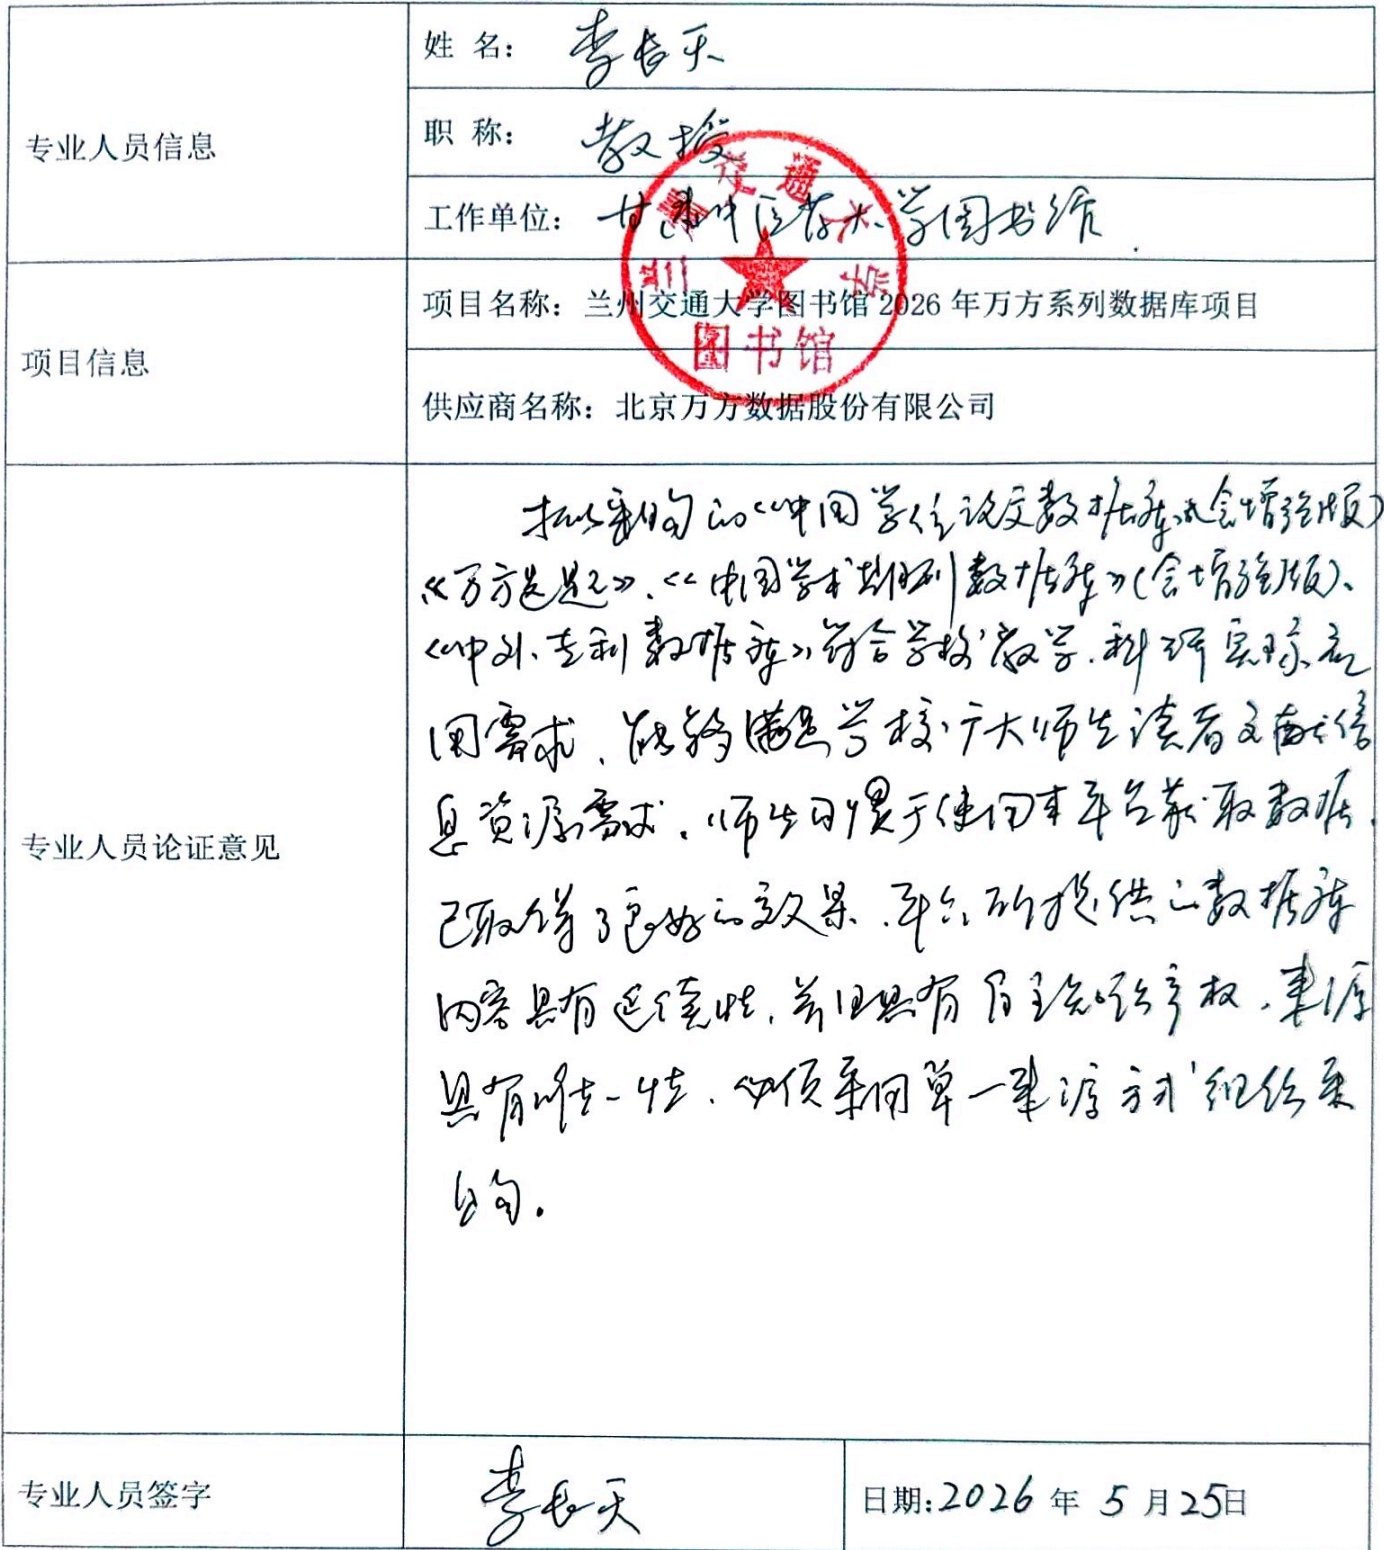 专业人员信息
姓 名： 李长天
职 称： 教授
工作单位： 甘肃中医药大学图书馆
兰州交通大学
图书馆
项目信息
项目名称：兰州交通大学图书馆 2026 年万方系列数据库项目
供应商名称：北京万方数据股份有限公司
专业人员论证意见
拟采购的《中国学位论文数据库》(含增强版)
《万方选题》、《中国学术期刊数据库》(含增强版)、
《中外专利数据库》符合学校教学、科研实际应
用需求，能够满足学校广大师生读者文献信
息资源需求，师生习惯于使用本平台获取数据，
已取得了良好的效果，平台所提供的数据库
内容具有延续性，并且具有自主知识产权，来源
具有唯一性，必须采用单一来源方式组织采
购。
专业人员签字
李长天
日期:2026 年 5 月25日